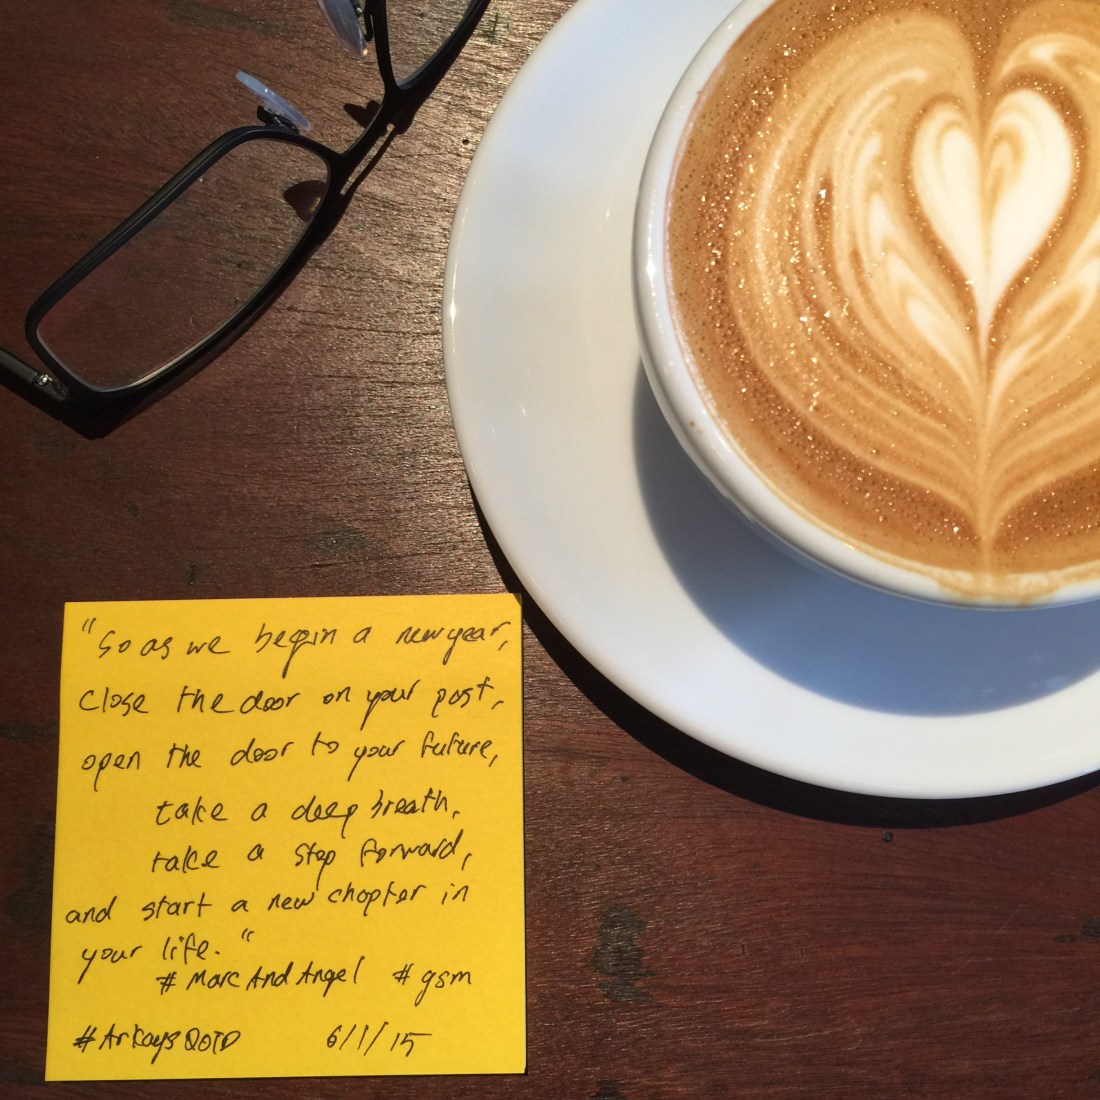 "So as we begin a new year,
close the door on your past,
open the door to your future,
take a deep breath,
take a step forward,
and start a new chapter in
your life."
#MarcAndAngel #gsm
#ArkaysQOTD 6/1/15